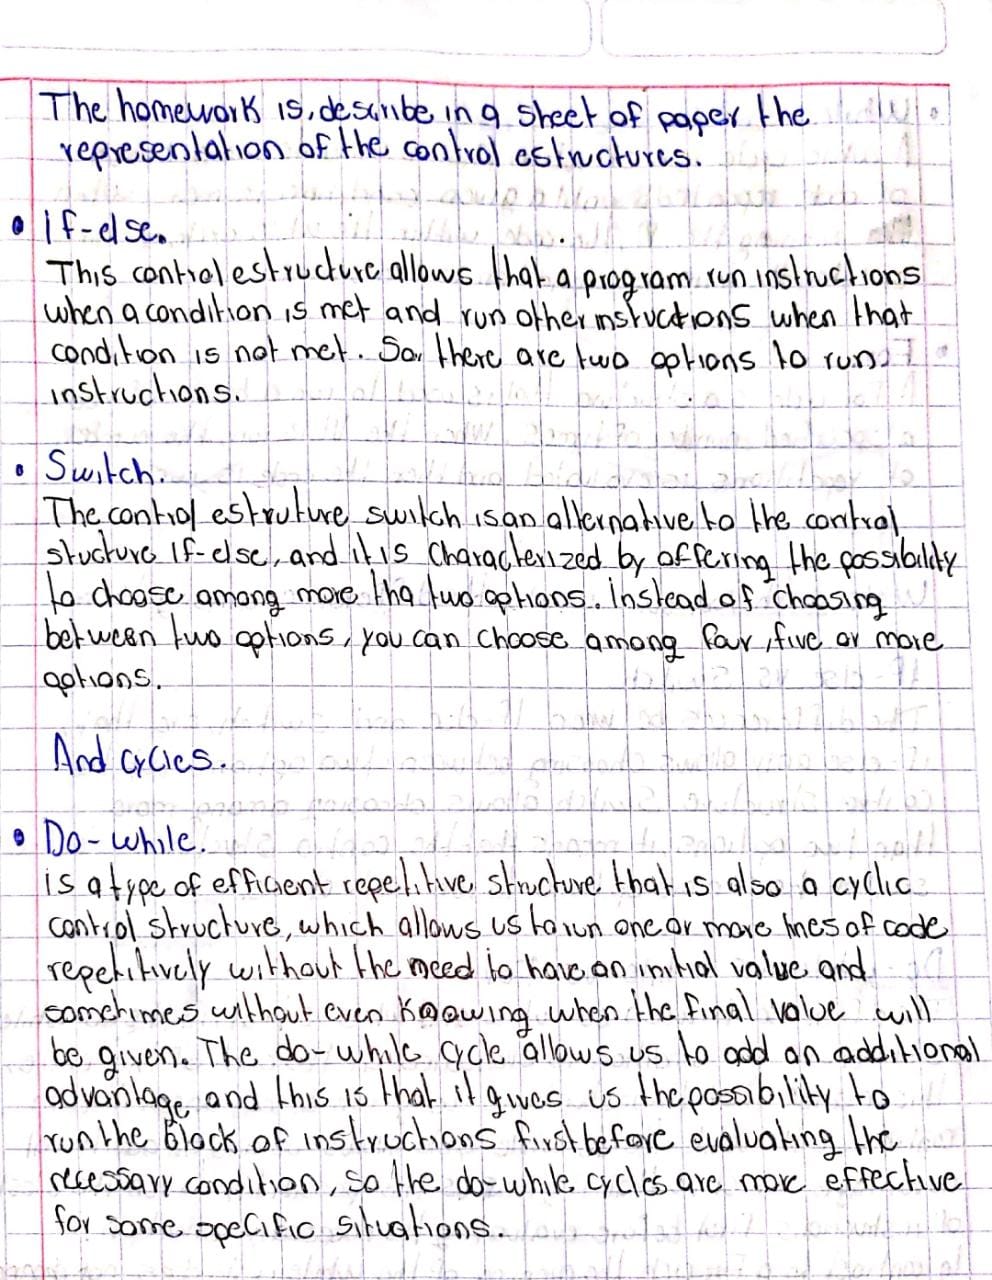 The homework is, describe in a sheet of paper the
representation of the control estructures.
• If-else.
This control estructure allows that a program run instructions
when a condition is met and run other instuctions when that
condition is not met. So, there are two options to run
instructions.
• Switch.
The control estruture switch is an alternative to the control
stucture if-else, and it is characterized by offering the possibility
to choose among more tha two options. Instead of choosing
between two options, you can choose among four, five or more
options.
And cycles.
• Do-while.
is a type of efficient repetitive structure that is also a cyclic
control structure, which allows us to run one or more lines of code
repetitively without the need to have an initial value and
sometimes without even knowing when the final value will
be given. The do-while cycle allows us to add an additional
advantage and this is that it gives us the possibility to
run the block of instructions first before evaluating the
necessary condition, so the do-while cycles are more effective
for some specific situations.